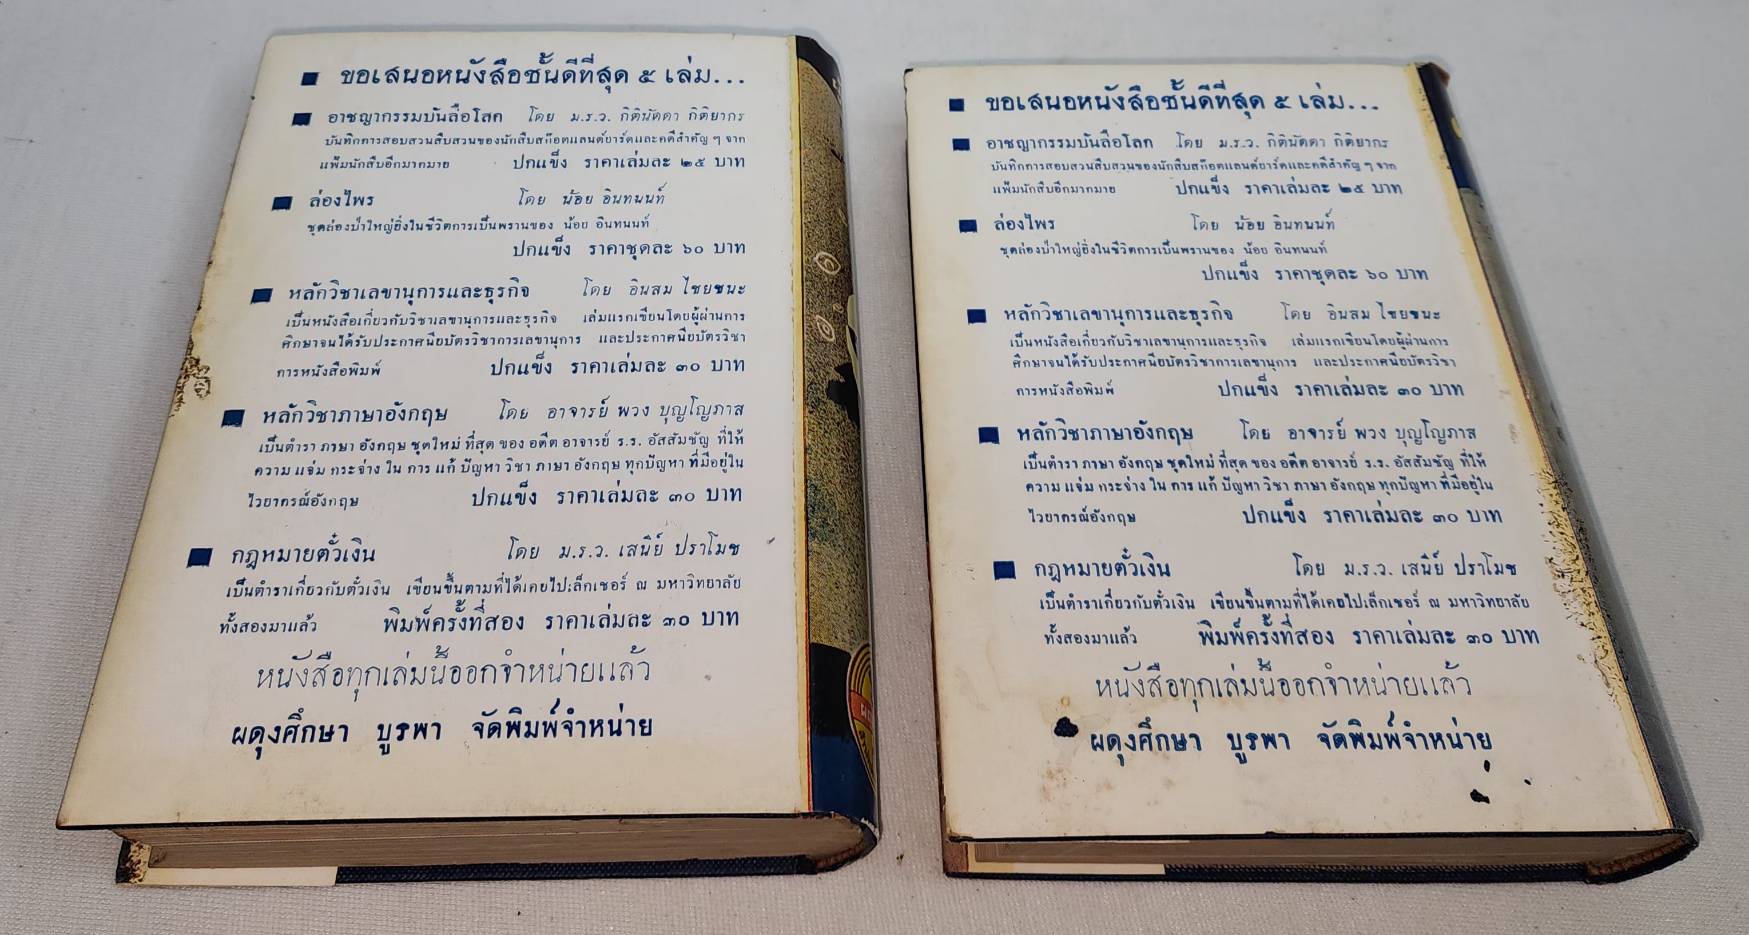 ขอเสนอหนังสือชั้นดีที่สุด ๕ เล่ม...
อาชญากรรมบันลือโลก โดย ม.ร.ว. กิตินัดดา กิติยากร
บันทึกการสอบสวนสืบสวนของนักสืบสก๊อตแลนด์ยาร์ดและคดีสำคัญ ๆ จาก
แฟ้มนักสืบอีกมากมาย ปกแข็ง ราคาเล่มละ ๒๕ บาท
ล่องไพร โดย น้อย อินทนนท์
ชุดล่องป่าใหญ่ยิ่งในชีวิตการเป็นพรานของ น้อย อินทนนท์
ปกแข็ง ราคาชุดละ ๖๐ บาท
หลักวิชาเลขานุการและธุรกิจ โดย อินสม ไชยชนะ
เป็นหนังสือเกี่ยวกับวิชาเลขานุการและธุรกิจ เล่มแรกเขียนโดยผู้ผ่านการ
ศึกษาจนได้รับประกาศนียบัตรวิชาการเลขานุการ และประกาศนียบัตรวิชา
การหนังสือพิมพ์ ปกแข็ง ราคาเล่มละ ๓๐ บาท
หลักวิชาภาษาอังกฤษ โดย อาจารย์ พวง บุญโญภาส
เป็นตำรา ภาษา อังกฤษ ชุดใหม่ ที่สุด ของ อดีต อาจารย์ ร.ร. อัสสัมชัญ ที่ให้
ความ แจ่ม กระจ่าง ใน การ แก้ ปัญหา วิชา ภาษา อังกฤษ ทุกปัญหา ที่มีอยู่ใน
ไวยากรณ์อังกฤษ ปกแข็ง ราคาเล่มละ ๓๐ บาท
กฎหมายตั๋วเงิน โดย ม.ร.ว. เสนีย์ ปราโมช
เป็นตำราเกี่ยวกับตั๋วเงิน เขียนขึ้นตามที่ได้เคยไปเล็กเชอร์ ณ มหาวิทยาลัย
ทั้งสองมาแล้ว พิมพ์ครั้งที่สอง ราคาเล่มละ ๓๐ บาท
หนังสือทุกเล่มนี้ออกจำหน่ายแล้ว
ผดุงศึกษา บูรพา จัดพิมพ์จำหน่าย
ขอเสนอหนังสือชั้นดีที่สุด ๕ เล่ม...
อาชญากรรมบันลือโลก โดย ม.ร.ว. กิตินัดดา กิติยากร
บันทึกการสอบสวนสืบสวนของนักสืบสก๊อตแลนด์ยาร์ดและคดีสำคัญ ๆ จาก
แฟ้มนักสืบอีกมากมาย ปกแข็ง ราคาเล่มละ ๒๕ บาท
ล่องไพร โดย น้อย อินทนนท์
ชุดล่องป่าใหญ่ยิ่งในชีวิตการเป็นพรานของ น้อย อินทนนท์
ปกแข็ง ราคาชุดละ ๖๐ บาท
หลักวิชาเลขานุการและธุรกิจ โดย อินสม ไชยชนะ
เป็นหนังสือเกี่ยวกับวิชาเลขานุการและธุรกิจ เล่มแรกเขียนโดยผู้ผ่านการ
ศึกษาจนได้รับประกาศนียบัตรวิชาการเลขานุการ และประกาศนียบัตรวิชา
การหนังสือพิมพ์ ปกแข็ง ราคาเล่มละ ๓๐ บาท
หลักวิชาภาษาอังกฤษ โดย อาจารย์ พวง บุญโญภาส
เป็นตำรา ภาษา อังกฤษ ชุดใหม่ ที่สุด ของ อดีต อาจารย์ ร.ร. อัสสัมชัญ ที่ให้
ความ แจ่ม กระจ่าง ใน การ แก้ ปัญหา วิชา ภาษา อังกฤษ ทุกปัญหา ที่มีอยู่ใน
ไวยากรณ์อังกฤษ ปกแข็ง ราคาเล่มละ ๓๐ บาท
กฎหมายตั๋วเงิน โดย ม.ร.ว. เสนีย์ ปราโมช
เป็นตำราเกี่ยวกับตั๋วเงิน เขียนขึ้นตามที่ได้เคยไปเล็กเชอร์ ณ มหาวิทยาลัย
ทั้งสองมาแล้ว พิมพ์ครั้งที่สอง ราคาเล่มละ ๓๐ บาท
หนังสือทุกเล่มนี้ออกจำหน่ายแล้ว
ผดุงศึกษา บูรพา จัดพิมพ์จำหน่าย